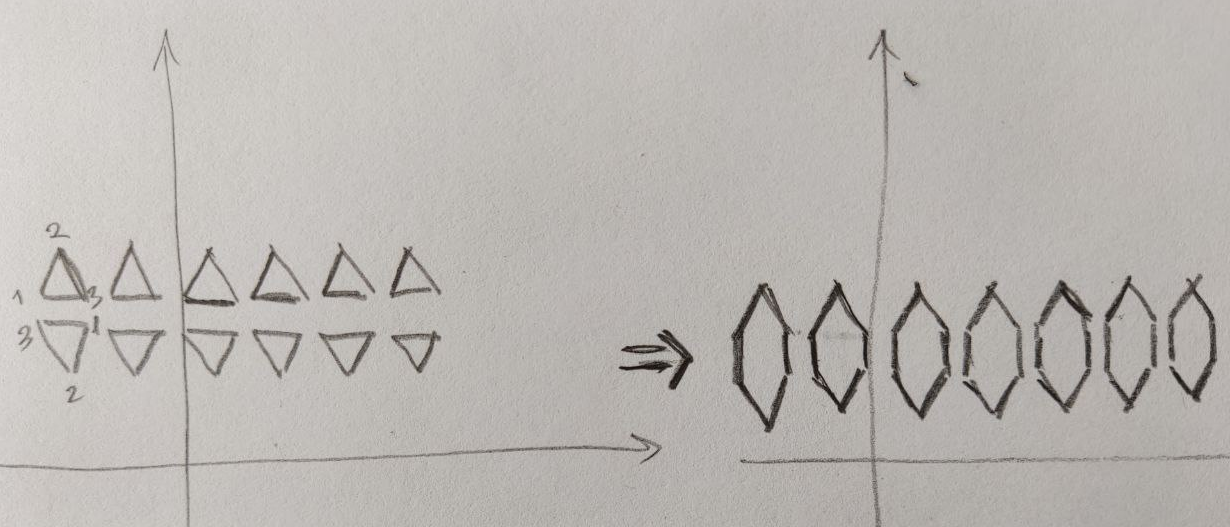 2
1 3
3 1
2